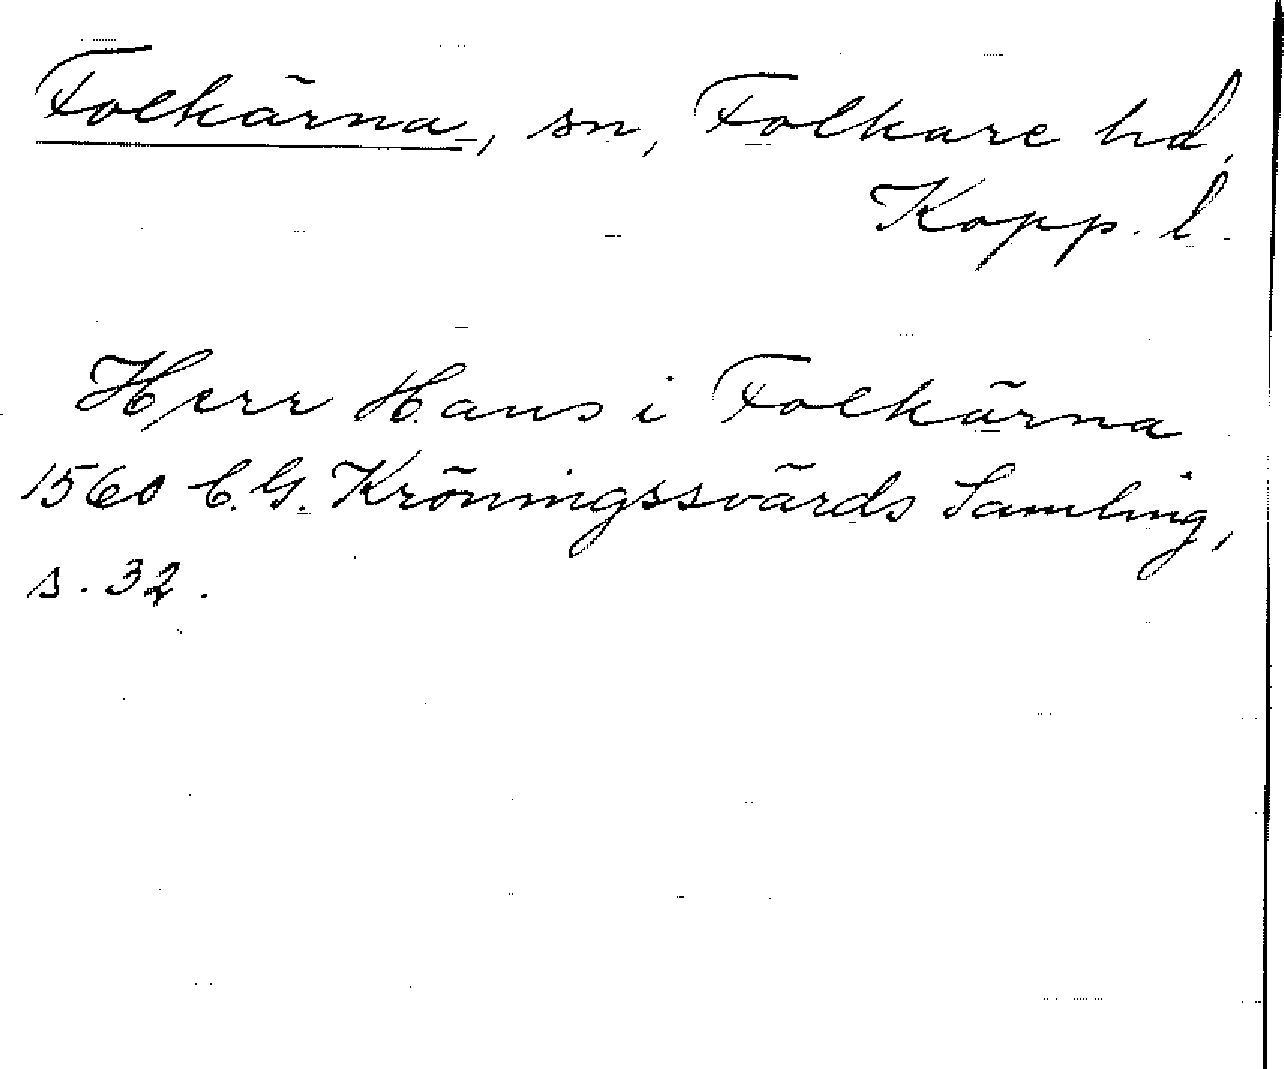 Folkärna, sn, Folkare hd,
Kopp. l.
Herr Hans i Folkärna
1560 C. G. Kröningssvärds Samling,
s. 32.